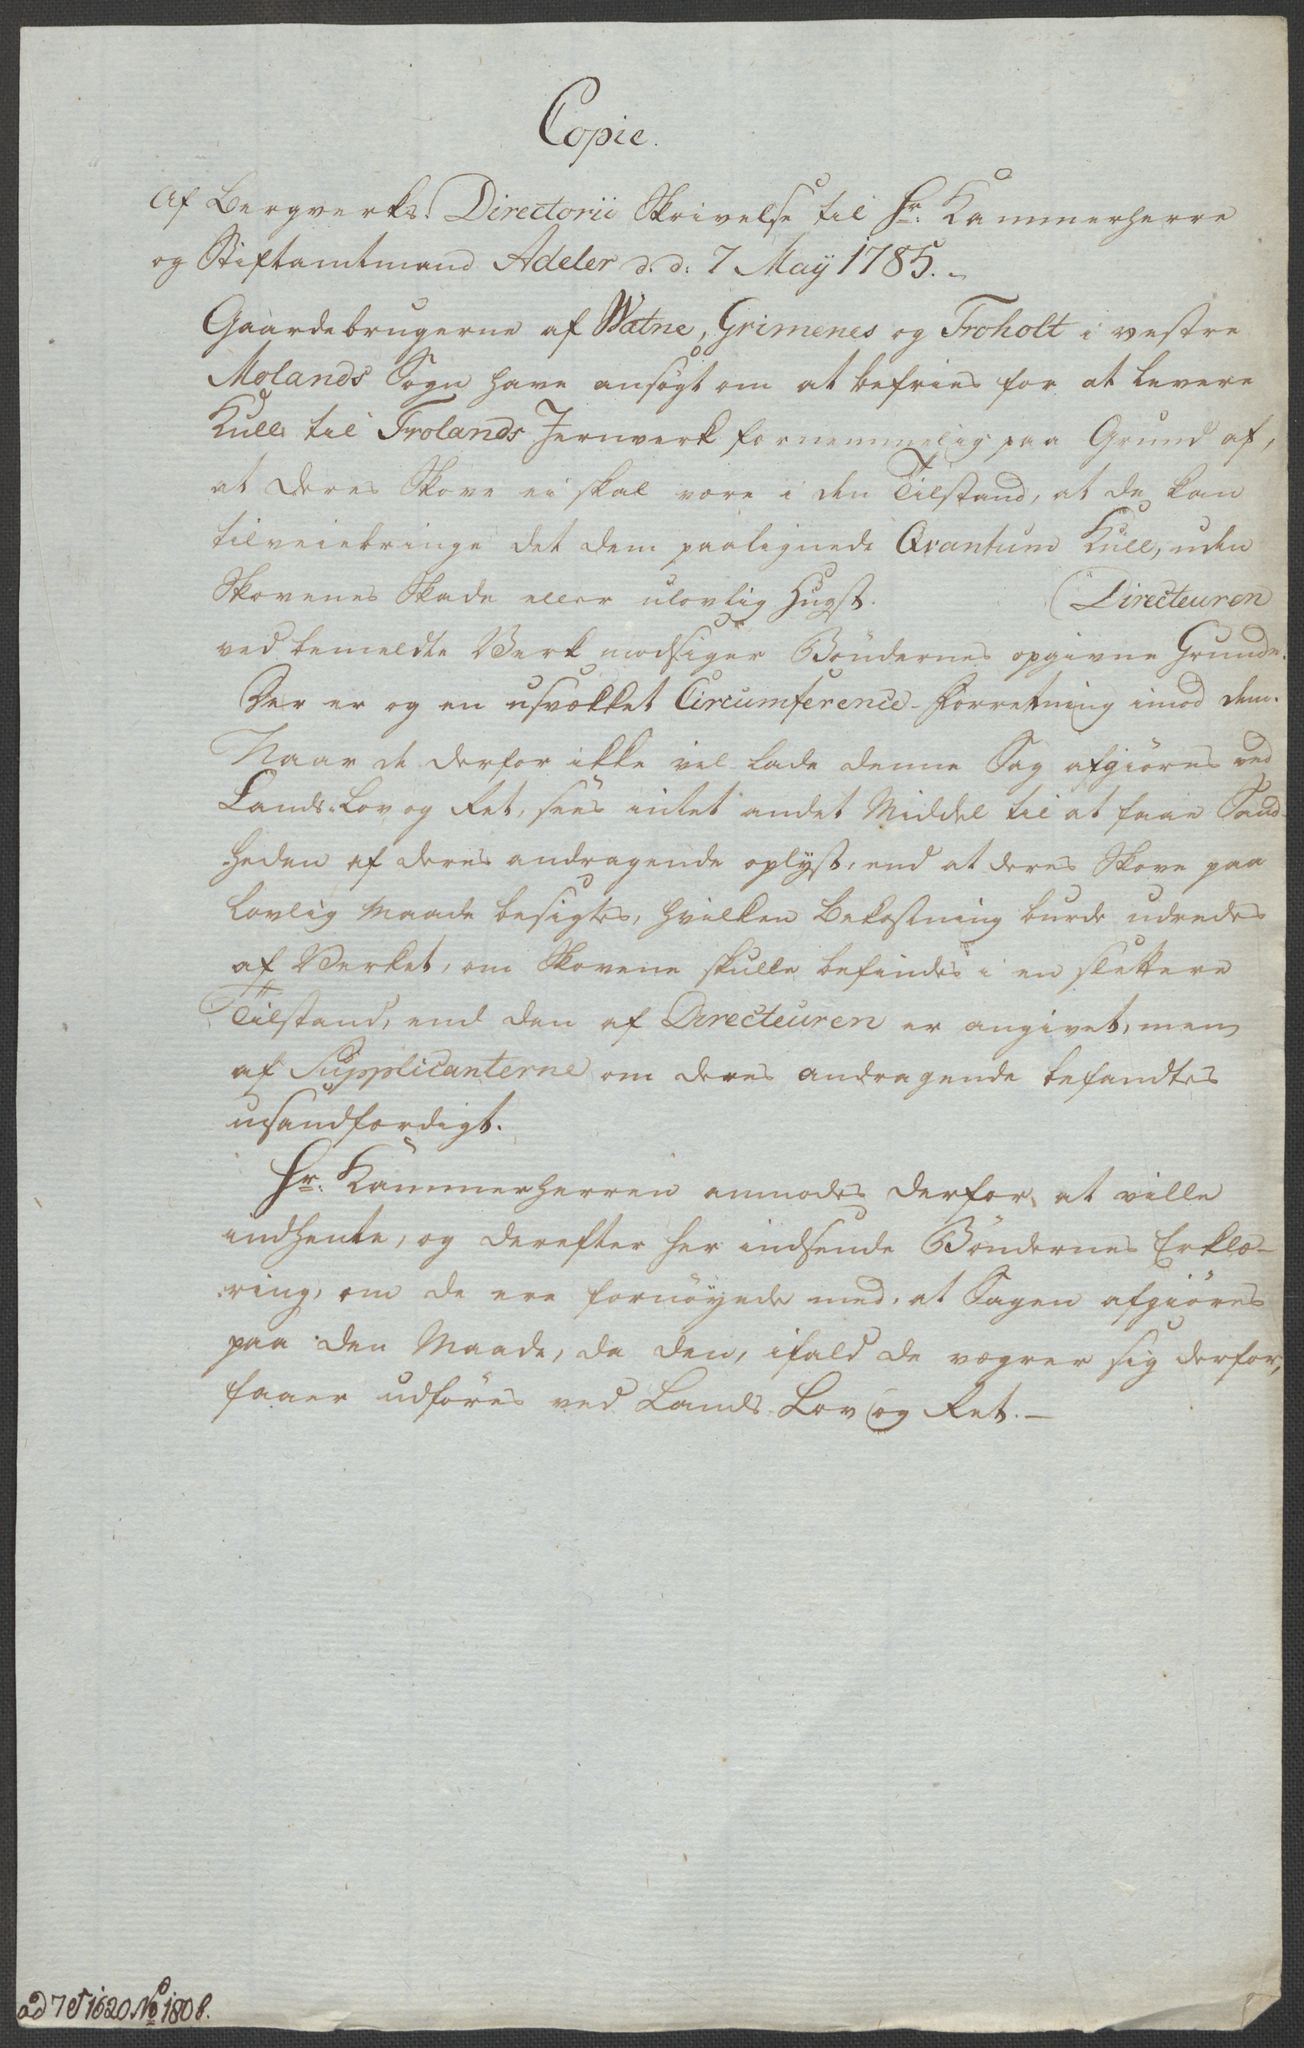 Copie.
Af Bergverks-Directorii Skrivelse til Hr. Kammerherre
og Stiftamtmand Adeler d. d: 7 Maÿ 1785. –
Gaardebrugerne af Watne, Grimenes og Troholt i vestre
Molands Sogn have ansögt om at befries for at levere
Kull til Frolands Jernverk fornemmelig paa Grund af,
at deres Skove ei skal være i den Tilstand, at de kan
tilveiebringe det dem paalignede Qvantum Kull, uden
Skovenes Skade eller ulovlig Hugst. Directeuren
ved bemeldte Verk modsiger Böndernes opgivne Grunde.
Der er og en usvækket Circumference-Forretning imod dem.
Naar de derfor ikke vil lade denne Sag afgiöres ved
Lands-Lov og Ret, sees intet andet Middel til at faae Sand-
heden af deres andragende oplyst, end at deres Skove paa
lovlig Maade besigtes, hvilken Bekostning burde udredes
af Verket, om Skovene skulle befindes i en slettere
Tilstand, end den af Directeuren er angivet, men
af Supplicanterne om deres andragende befandtes
usandfærdigt.
Hr. Kammerherren anmodes derfor at ville
indhente, og derefter her indsende Böndernes Erklæ-
ring, om de ere fornöyede med, at Sagen afgiöres
paa den Maade, da den, ifald de vægrer sig derfor,
faaer udföres ved Lands Lov og Ret. –
ad 7 et 1620 No 1808.